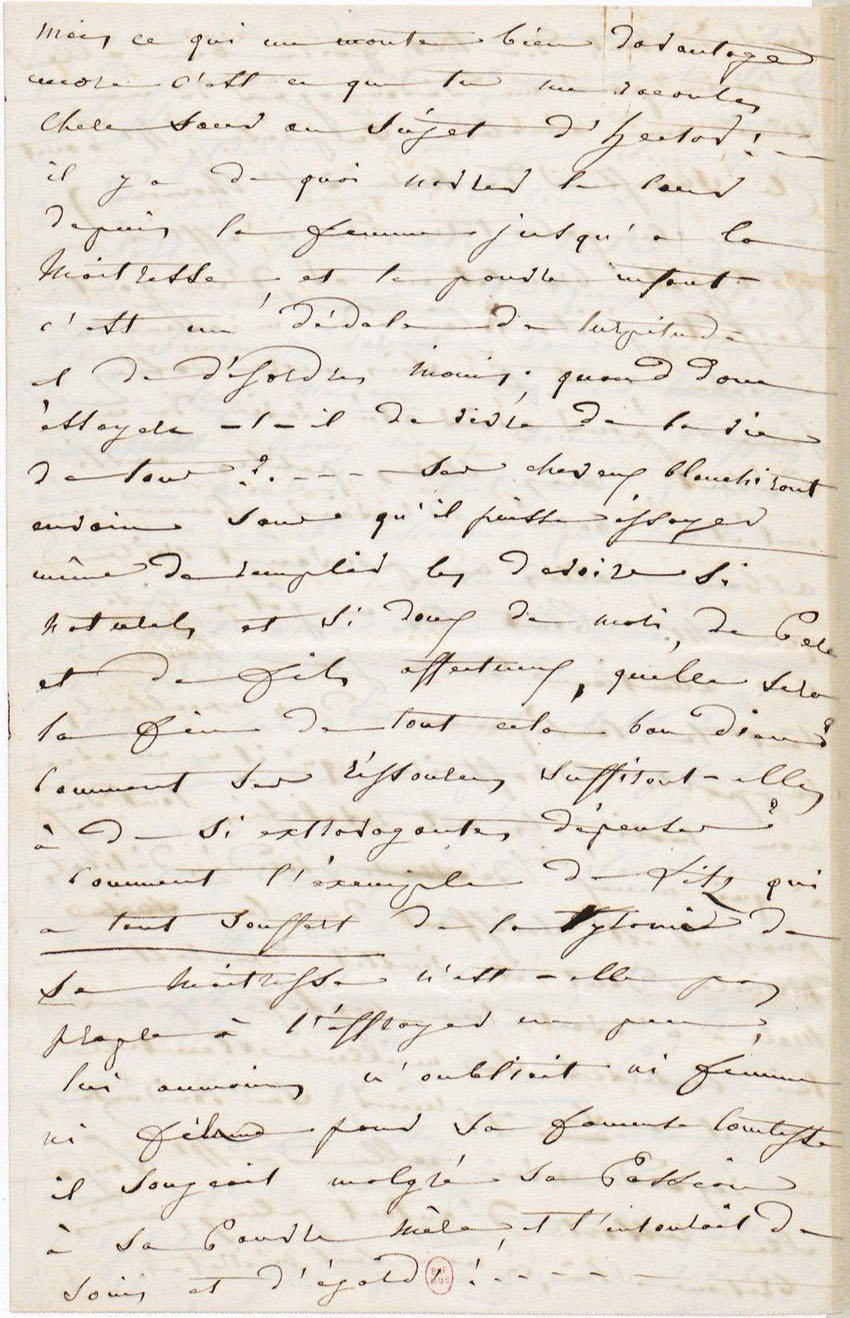 mais ce qui me monte bien davantage
encore c'est ce que tu me racontes
chere sœur au sujet d'Hector! —
il y a de quoi navrer le cœur
depuis la femme jusqu'a la
Maitresse, et le pauvre enfant
c'est un dédale de turpitude
et de désordres inouis; quand donc
éssayera-t-il de vivre de la vie
de tous?.--- ses cheveux blanchiront
envain sans qu'il puisse éssayer
même de remplir les devoirs si
naturels et si doux de mari, de Pere
et de fils affectueux, quelle sera
la fin de tout cela bon dieu?
comment ses réssources suffiront-elles
à de si extravagantes dépenses?
comment l'éxemple de fitz qui
a tant souffert de la tyrannie de
sa maitresse n'est-elle pas
propre à l'effrayer un peu,
lui aumoins n'oubliait ni femme
ni pour sa fameuse comtesse
il songeait malgré sa Passion
à sa Pauvre Mère, et l'entourait de
soins et d'égards!.----